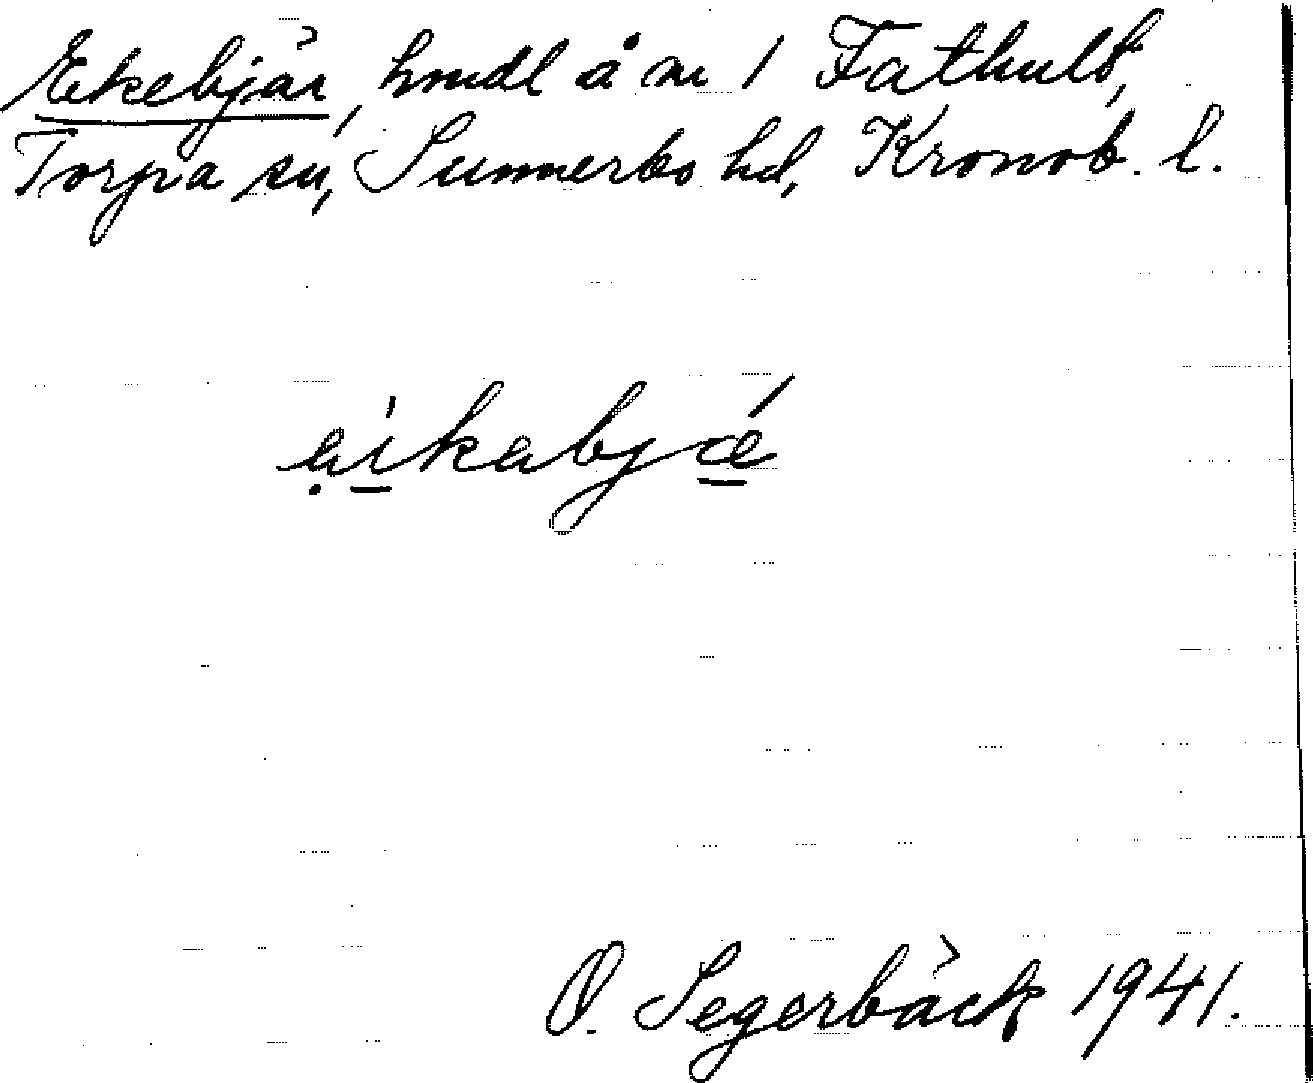 Ekebjär, hmdl å nr 1 Fathult,
Torpa sn, Sunnerbo hd, Kronob. l.
aikabjæ
O. Segerbäck 1941.